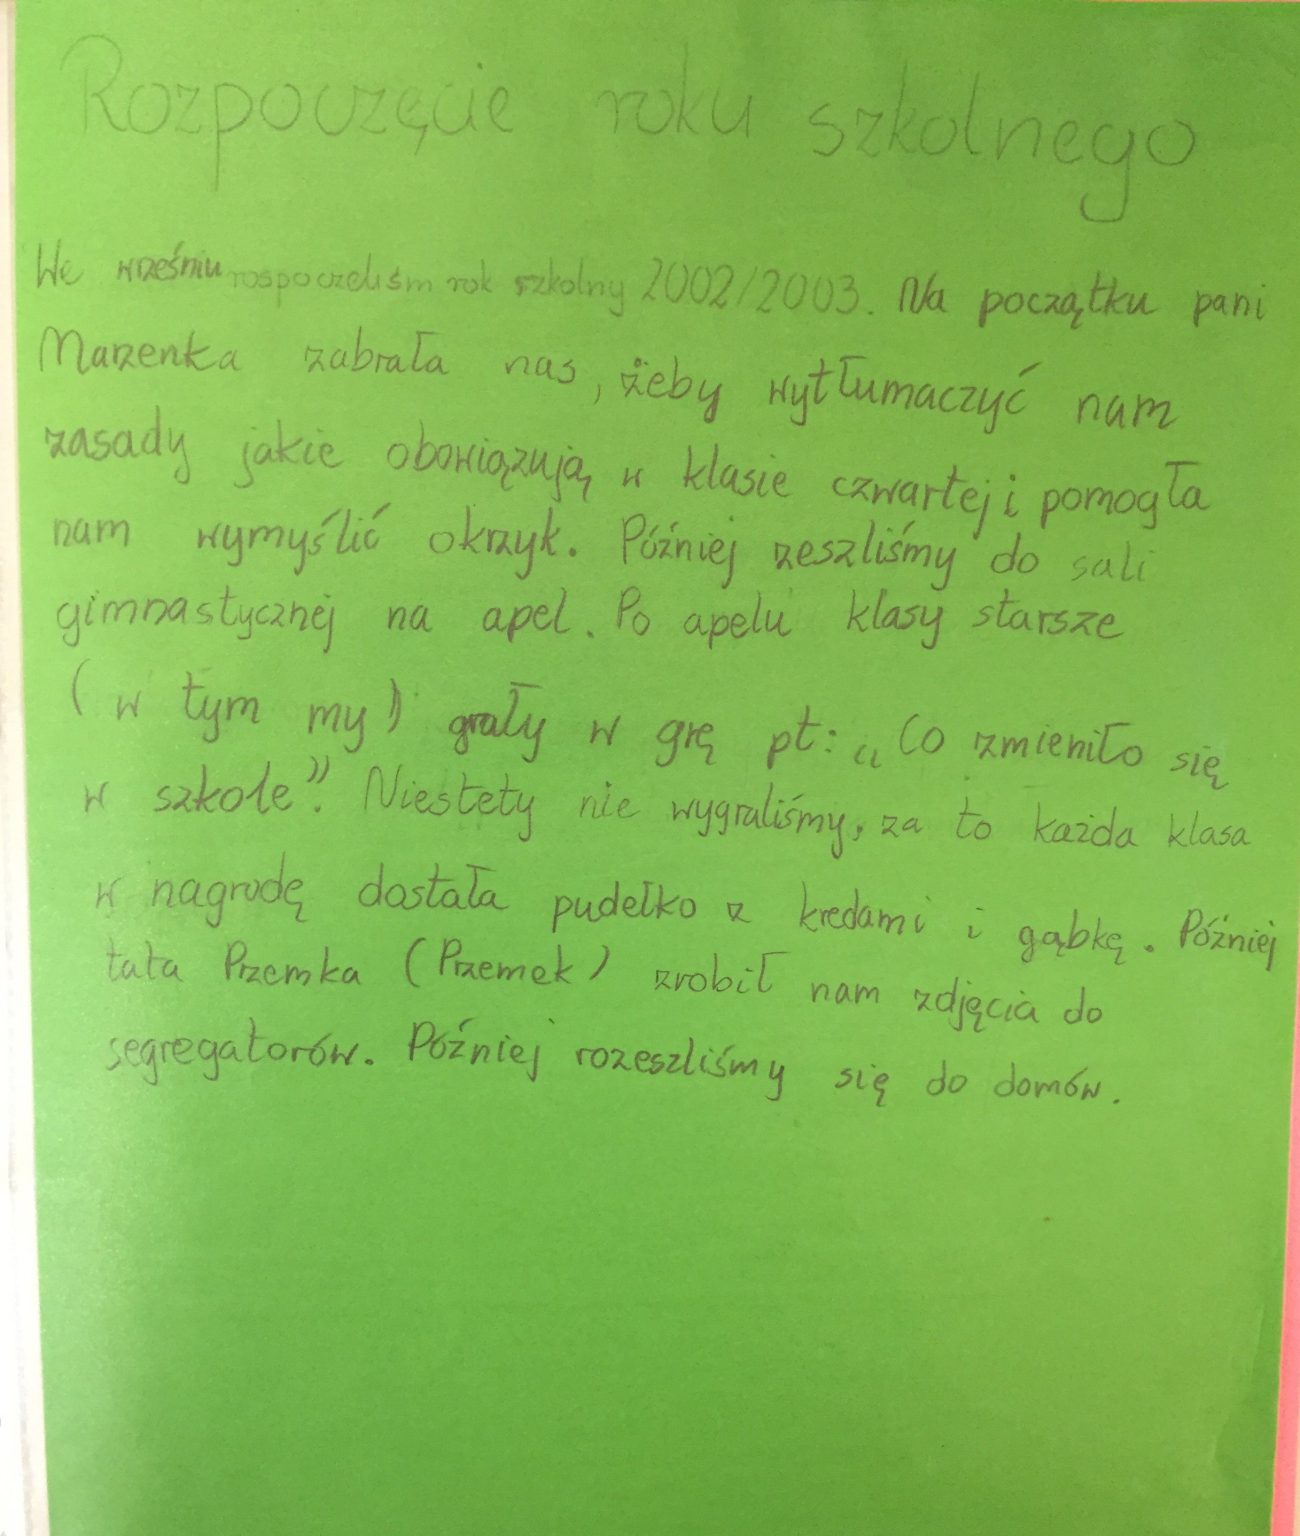 Rozpoczęcie roku szkolnego
We wrześniu rospoczeliśm rok szkolny 2002/2003. Na początku pani
Marzenka zabrała nas, żeby wytłumaczyć nam
zasady jakie obowiązują w klasie czwartej i pomogła
nam wymyślić okrzyk. Później zeszliśmy do sali
gimnastycznej na apel. Po apelu klasy starsze
(w tym my) grały w grę pt: „Co zmieniło się
w szkole”. Niestety nie wygraliśmy, za to każda klasa
w nagrodę dostała pudełko z kredami i gąbkę. Później
tata Przemka (Przemek) zrobił nam zdjęcia do
segregatorów. Później rozeszliśmy się do domów.